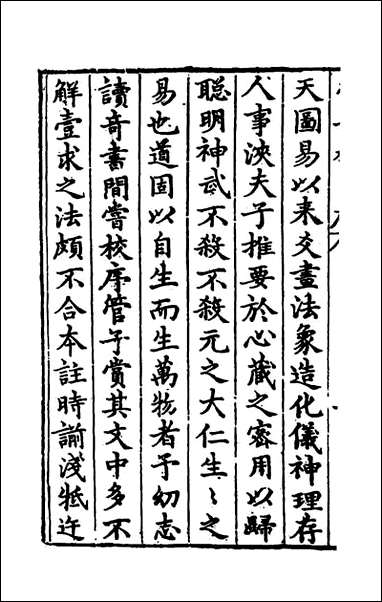 天圖易以来爻畫法象造化儀神理存
人事泱夫子推要於心藏之密用以歸
聡明神武不殺不殺元之大仁生〻之
易也道固以自生而生萬物者予幼志
讀竒書間嘗校序管子賞其文中多不
解壹求之法頗不合本註時諭淺牴迕